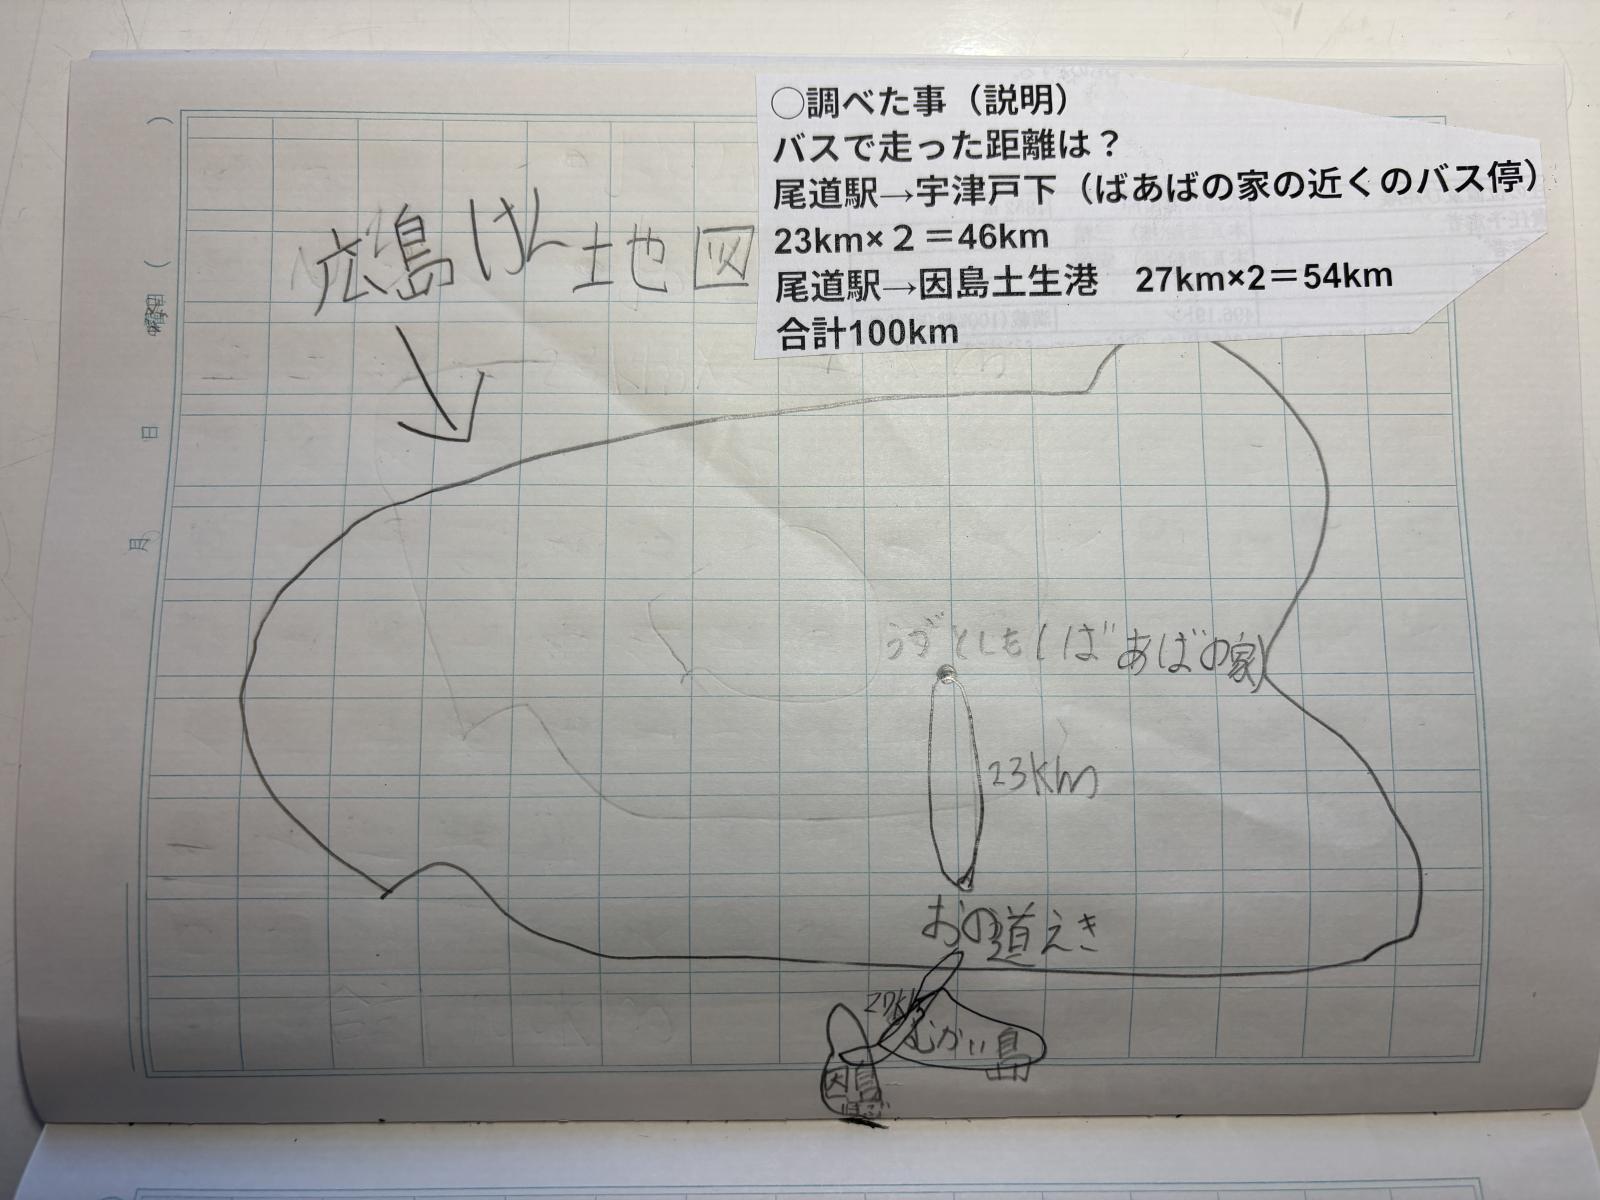 ○調べた事（説明）
バスで走った距離は？
尾道駅→宇津戸下（ばあばの家の近くのバス停）
23km×２＝46km
尾道駅→因島土生港　27km×2＝54km
合計100km
広島けん地図
うづとしも(ばあばの家)
23km
おの道えき
27km
むかい島
因島
はぶ
月
日